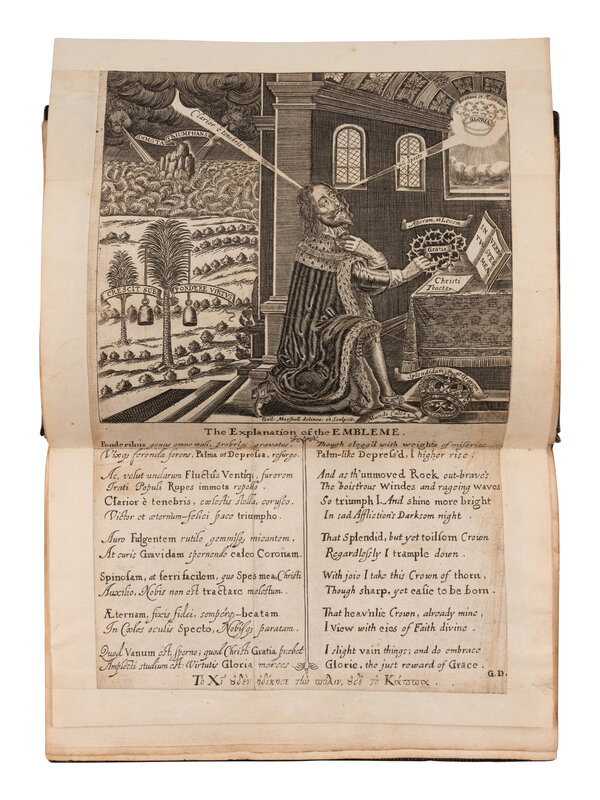 Clarior é tenebris
IMMOTA TRIUMPHANS
GLORIA
Asperam, at Levem
Gratia
IN VERBO TUO SPES MEA
Christi
Tracto
CRESCIT SUB PONDERE VIRTUS
Guil: Marshall delinea: et Sculpsit
The Explanation of the EMBLEME.
Ponderibus genus omne mali, probri gravatus,
Vixq; ferenda ferens, Palma ut Depressa, resurgo.
Ac, velut undarum Fluctûs Ventiq; furorem
Irati Populi Rupes immota repello.
Clarior è tenebris, cœlestis stella, corusco.
Victor et æternum-felici pace triumpho.
Auro Fulgentem rutilo gemmisq; micantem,
At curis Gravidam spernendo calco Coronam.
Spinosam, at ferri facilem, quo Spes mea, Christi
Auxilio, Nobis non est tractare molestum.
Æternam, fixis fidei, semperq;-beatam
In Cœlos oculis Specto, Nobisq; paratam.
Quod Vanum est, sperno; quod Christi Gratia præbet
Amplecti studium est: Virtutis Gloria merces.
Though clogg'd with weights of miseries
Palm-like Depress'd, I higher rise.
And as th'unmoved Rock out-brave's
The boistrous Windes and rageing waves
So triumph I. And shine more bright
In sad Affliction's Darksom night.
That Splendid, but yet toilsom Crown
Regardlessly I trample down.
With joie I take this Crown of thorn,
Though sharp, yet easie to be born.
That heav'nlie Crown, already mine,
I View with eies of Faith divine.
I slight vain things; and do embrace
Glorie, the just reward of Grace. G.D.
Τὸ Χῖ ὐδὲν ἠδίκησε τὼ πόλιν, ὐδὲ τὸ Κάππα.